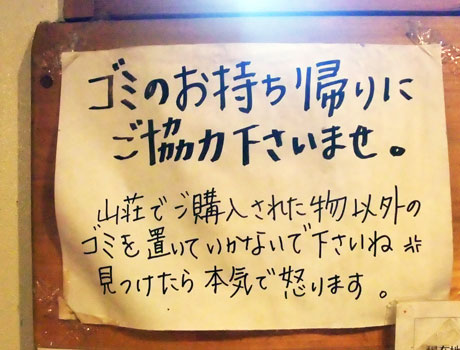 ゴミのお持ち帰りに
ご協力下さいませ。
山荘でご購入された物以外の
ゴミを置いていかないで下さいね
見つけたら本気で怒ります。
現在地